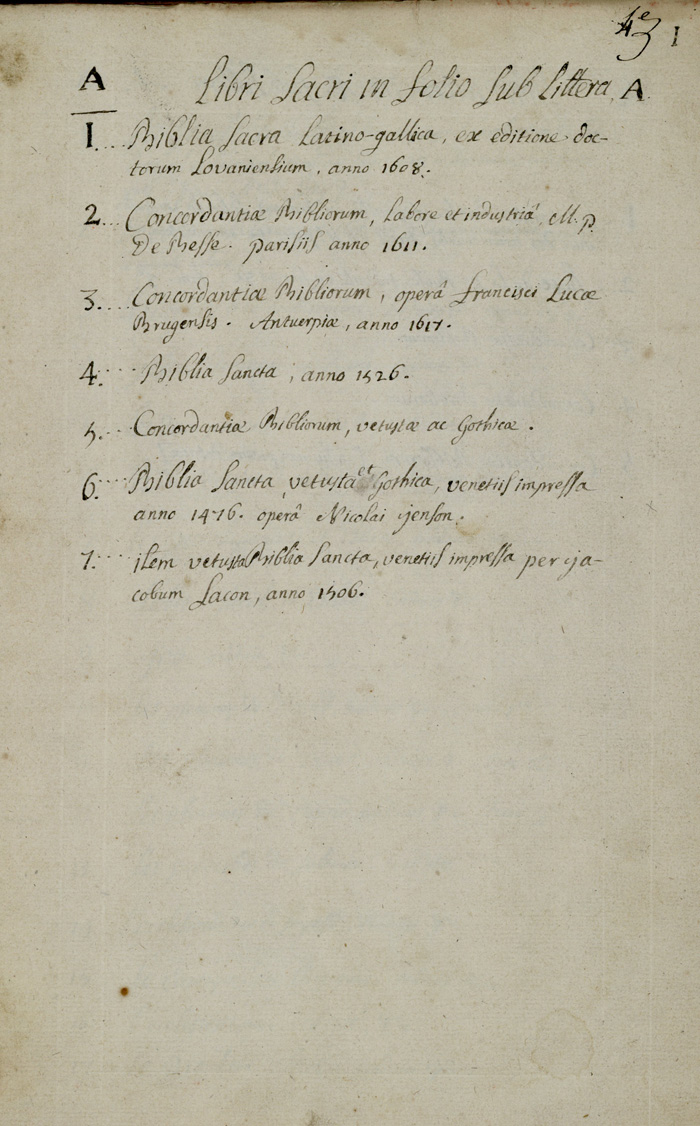 43 1
A Libri Sacri in folio sub littera A
1... Biblia Sacra Latino-gallica, ex editione doc-
torum Lovaniensium, anno 1608.
2... Concordantiæ Bibliorum, labore et industriâ M. p.
De Besse. parisiis anno 1611.
3... Concordantiæ Bibliorum, operâ francisci Lucæ
Brugensis. Antuerpiæ, anno 1617.
4... Biblia Sancta, anno 1526.
5... Concordantiæ Bibliorum, vetustæ ac Gothicæ.
6... Biblia Sancta vetusta et Gothica, venetiis impressa
anno 1476. operâ Nicolai jenson.
7... item vetusta Biblia Sancta, venetiis impressa per ja-
cobum Sacon, anno 1506.